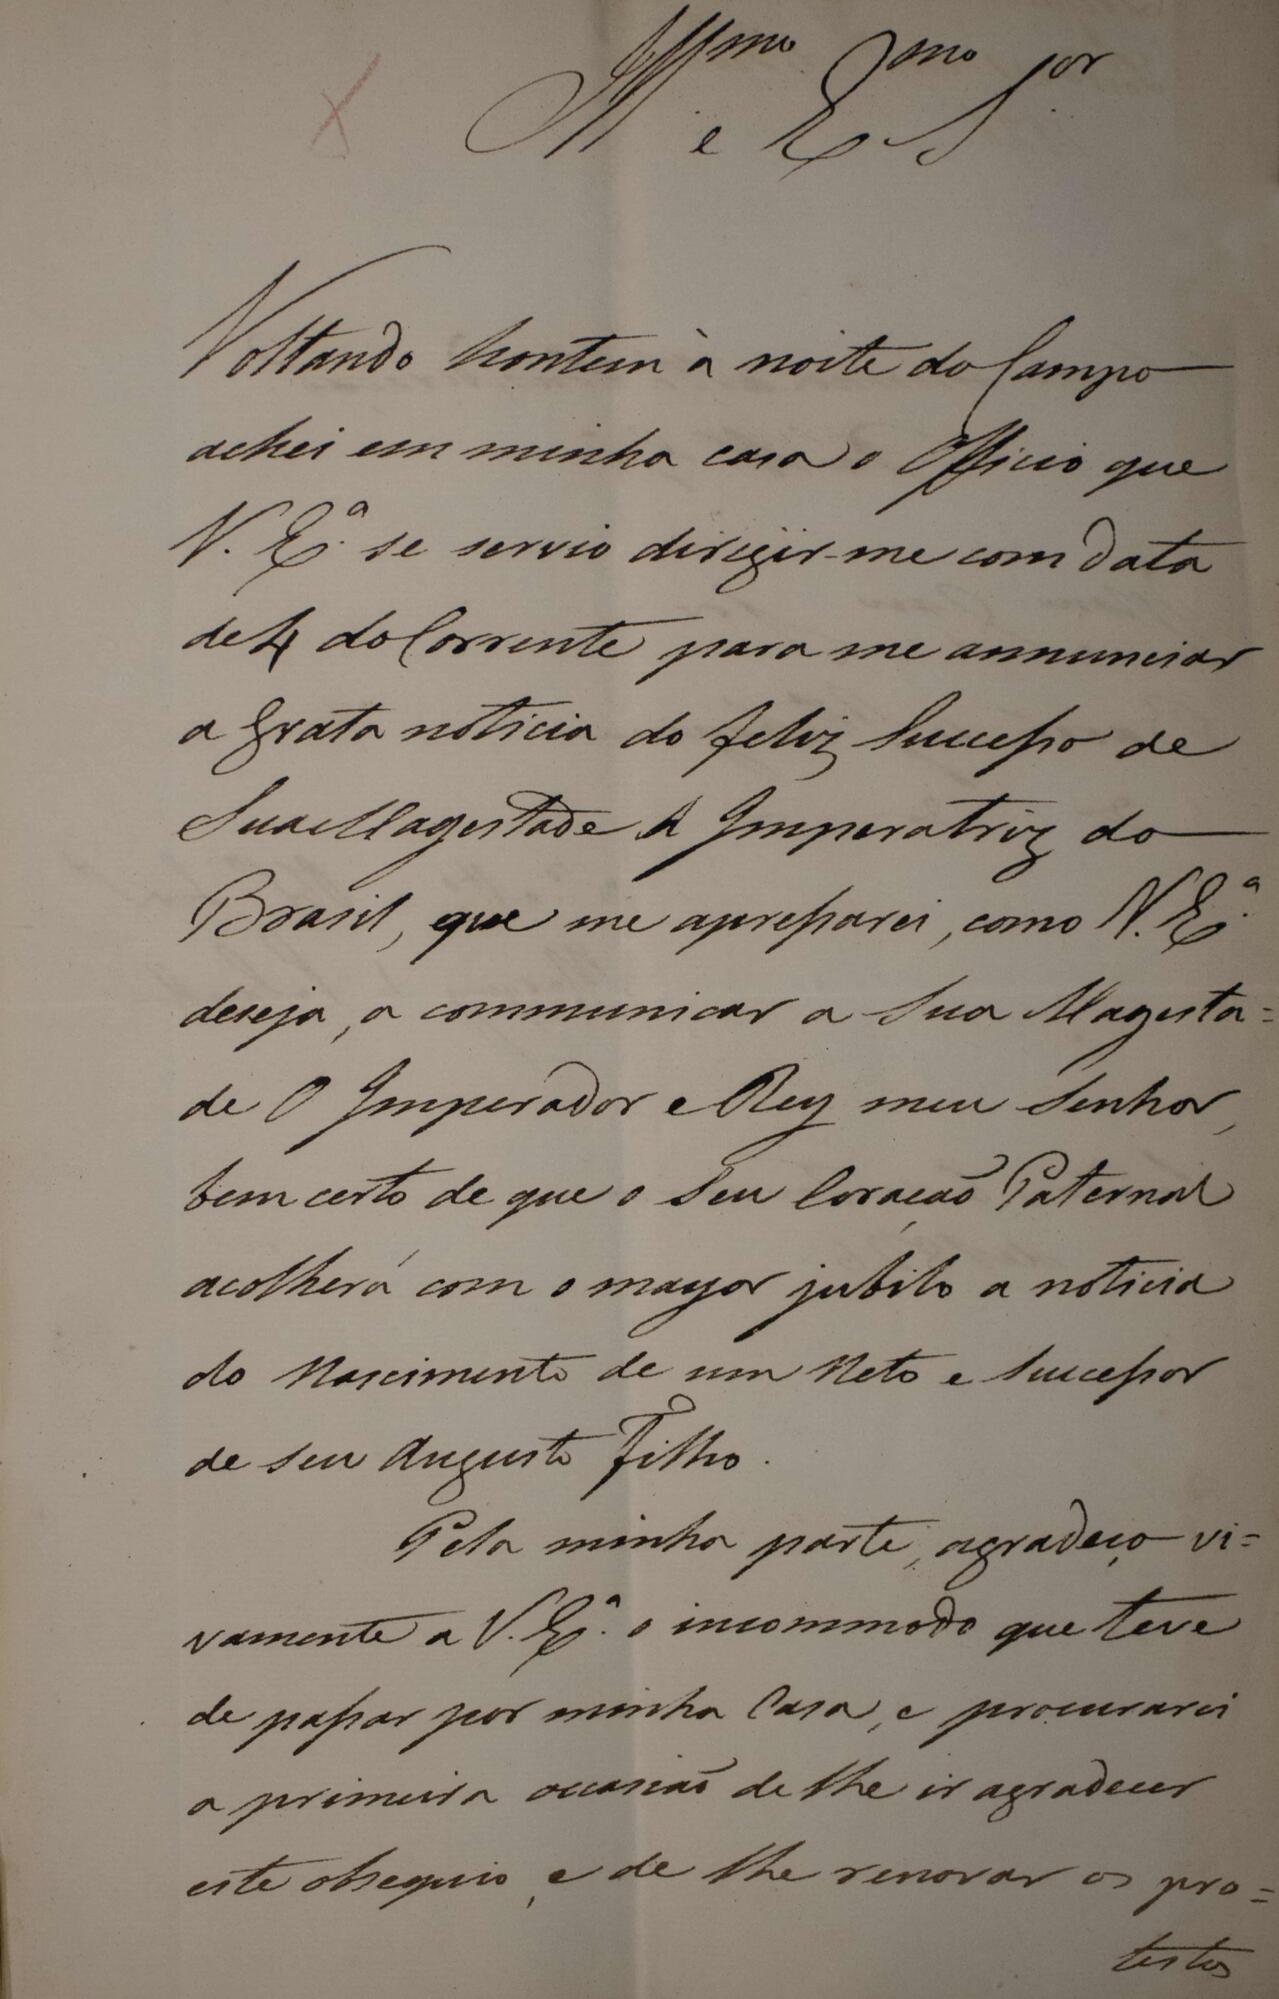 Illmo e Exmo Sor
Voltando hontem à noite do Campo
achei em minha casa o Officio que
V. Ex.ª se servio dirigir-me com data
de 4 do Corrente para me annunciar
a grata noticia do feliz Successo de
Sua Magestade A Imperatriz do
Brasil, que me apressarei, como V. Ex.ª
deseja, a communicar a Sua Magesta=
de O Imperador e Rey meu Senhor,
bem certo de que o Seu Coração Paternal
acolherá com o mayor jubilo a noticia
do Nascimento de um Neto e Successor
de seu Augusto Filho.
Pela minha parte, agradeço vi=
vamente a V. Ex.ª o incommodo que teve
de passar por minha Casa, e procurarei
a primeira occasião de lhe ir agradecer
este obsequio, e de lhe renovar os pro=
testos